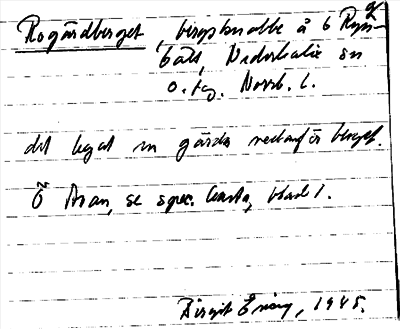 Rogärdberget, bergsknalle å 6 Ryss-
bält, Nederkalix sn
o. tg. Norrb. l.
det legat en gärda nedanför berget.
Ö Åvan, se spec. karta, blad 1.
Birgit Ering, 1945.